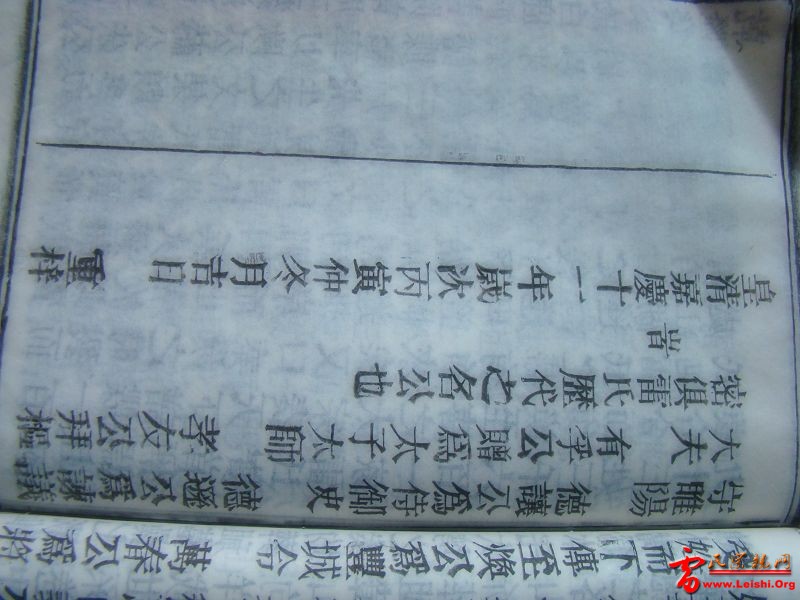 而下傳至煥公爲豐城令 萬春公爲將
守睢陽 德讓公爲侍御史 德遜公爲諫議
大夫 有孚公贈爲太子太師 孝友公拜樞
密俱雷氏歷代之名公也
旹
皇清嘉慶十一年歲次丙寅仲冬月吉日 重梓
www.Leishi.Org